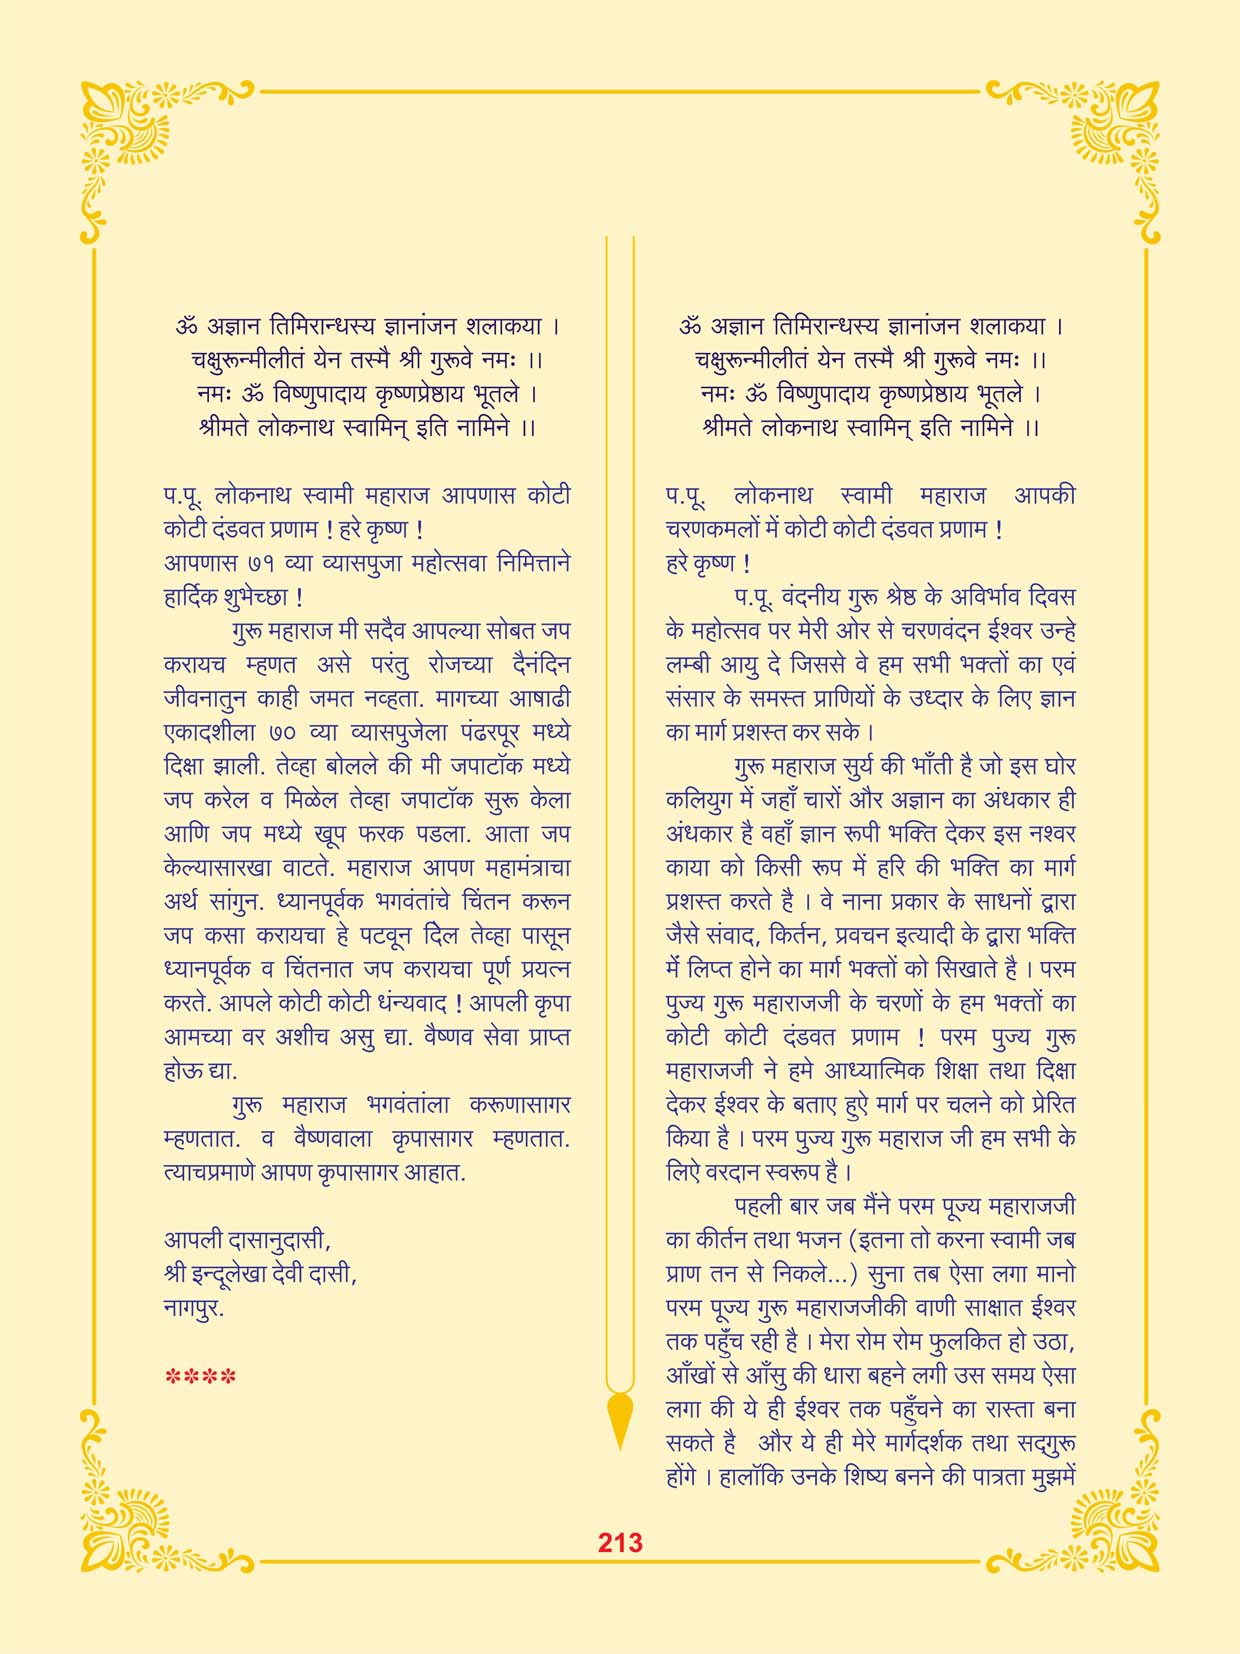 ॐ अज्ञान तिमिरान्धस्य ज्ञानांजन शलाकया ।
चक्षुरून्मीलीतं येन तस्मै श्री गुरूवे नमः ।।
नमः ॐ विष्णुपादाय कृष्णप्रेष्ठाय भूतले ।
श्रीमते लोकनाथ स्वामिन् इति नामिने ।।
प.पू. लोकनाथ स्वामी महाराज आपणास कोटी
कोटी दंडवत प्रणाम ! हरे कृष्ण !
आपणास ७१ व्या व्यासपुजा महोत्सवा निमित्ताने
हार्दिक शुभेच्छा !
गुरू महाराज मी सदैव आपल्या सोबत जप
करायच म्हणत असे परंतु रोजच्या दैनंदिन
जीवनातुन काही जमत नव्हता. मागच्या आषाढी
एकादशीला ७० व्या व्यासपुजेला पंढरपूर मध्ये
दिक्षा झाली. तेव्हा बोलले की मी जपाटॉक मध्ये
जप करेल व मिळेल तेव्हा जपाटॉक सुरू केला
आणि जप मध्ये खूप फरक पडला. आता जप
केल्यासारखा वाटते. महाराज आपण महामंत्राचा
अर्थ सांगुन. ध्यानपूर्वक भगवंतांचे चिंतन करून
जप कसा करायचा हे पटवून दिेल तेव्हा पासून
ध्यानपूर्वक व चिंतनात जप करायचा पूर्ण प्रयत्न
करते. आपले कोटी कोटी धंन्यवाद ! आपली कृपा
आमच्या वर अशीच असु द्या. वैष्णव सेवा प्राप्त
होऊ द्या.
गुरू महाराज भगवंतांला करूणासागर
म्हणतात. व वैष्णवाला कृपासागर म्हणतात.
त्याचप्रमाणे आपण कृपासागर आहात.
आपली दासानुदासी,
श्री इन्दूलेखा देवी दासी,
नागपुर.
****
ॐ अज्ञान तिमिरान्धस्य ज्ञानांजन शलाकया ।
चक्षुरून्मीलीतं येन तस्मै श्री गुरूवे नमः ।।
नमः ॐ विष्णुपादाय कृष्णप्रेष्ठाय भूतले ।
श्रीमते लोकनाथ स्वामिन् इति नामिने ।।
प.पू. लोकनाथ स्वामी महाराज आपकी
चरणकमलों में कोटी कोटी दंडवत प्रणाम !
हरे कृष्ण !
प.पू. वंदनीय गुरू श्रेष्ठ के अविर्भाव दिवस
के महोत्सव पर मेरी ओर से चरणवंदन ईश्वर उन्हे
लम्बी आयु दे जिससे वे हम सभी भक्तों का एवं
संसार के समस्त प्राणियों के उध्दार के लिए ज्ञान
का मार्ग प्रशस्त कर सके ।
गुरू महाराज सुर्य की भाँती है जो इस घोर
कलियुग में जहाँ चारों और अज्ञान का अंधकार ही
अंधकार है वहाँ ज्ञान रूपी भक्ति देकर इस नश्वर
काया को किसी रूप में हरि की भक्ति का मार्ग
प्रशस्त करते है । वे नाना प्रकार के साधनों द्वारा
जैसे संवाद, किर्तन, प्रवचन इत्यादी के द्वारा भक्ति
में लिप्त होने का मार्ग भक्तों को सिखाते है । परम
पुज्य गुरू महाराजजी के चरणों के हम भक्तों का
कोटी कोटी दंडवत प्रणाम ! परम पुज्य गुरू
महाराजजी ने हमे आध्यात्मिक शिक्षा तथा दिक्षा
देकर ईश्वर के बताए हुऐ मार्ग पर चलने को प्रेरित
किया है । परम पुज्य गुरू महाराज जी हम सभी के
लिऐ वरदान स्वरूप है ।
पहली बार जब मैंने परम पूज्य महाराजजी
का कीर्तन तथा भजन (इतना तो करना स्वामी जब
प्राण तन से निकले...) सुना तब ऐसा लगा मानो
परम पूज्य गुरू महाराजजीकी वाणी साक्षात ईश्वर
तक पहुँच रही है । मेरा रोम रोम फुलकित हो उठा,
आँखों से आँसु की धारा बहने लगी उस समय ऐसा
लगा की ये ही ईश्वर तक पहुँचने का रास्ता बना
सकते है और ये ही मेरे मार्गदर्शक तथा सद्गुरू
होंगे । हालॉकि उनके शिष्य बनने की पात्रता मुझमें
213